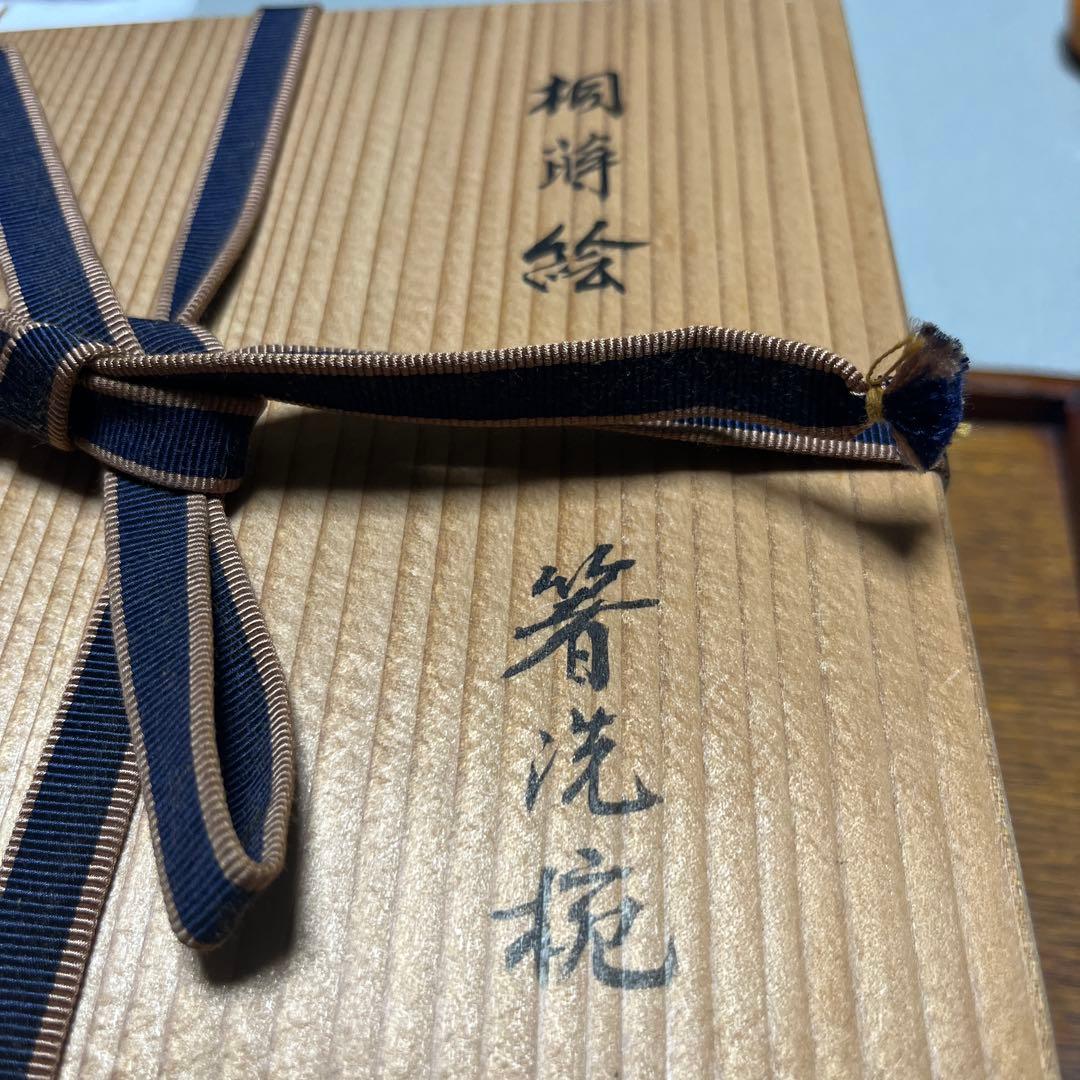 桐蒔絵
箸洗椀